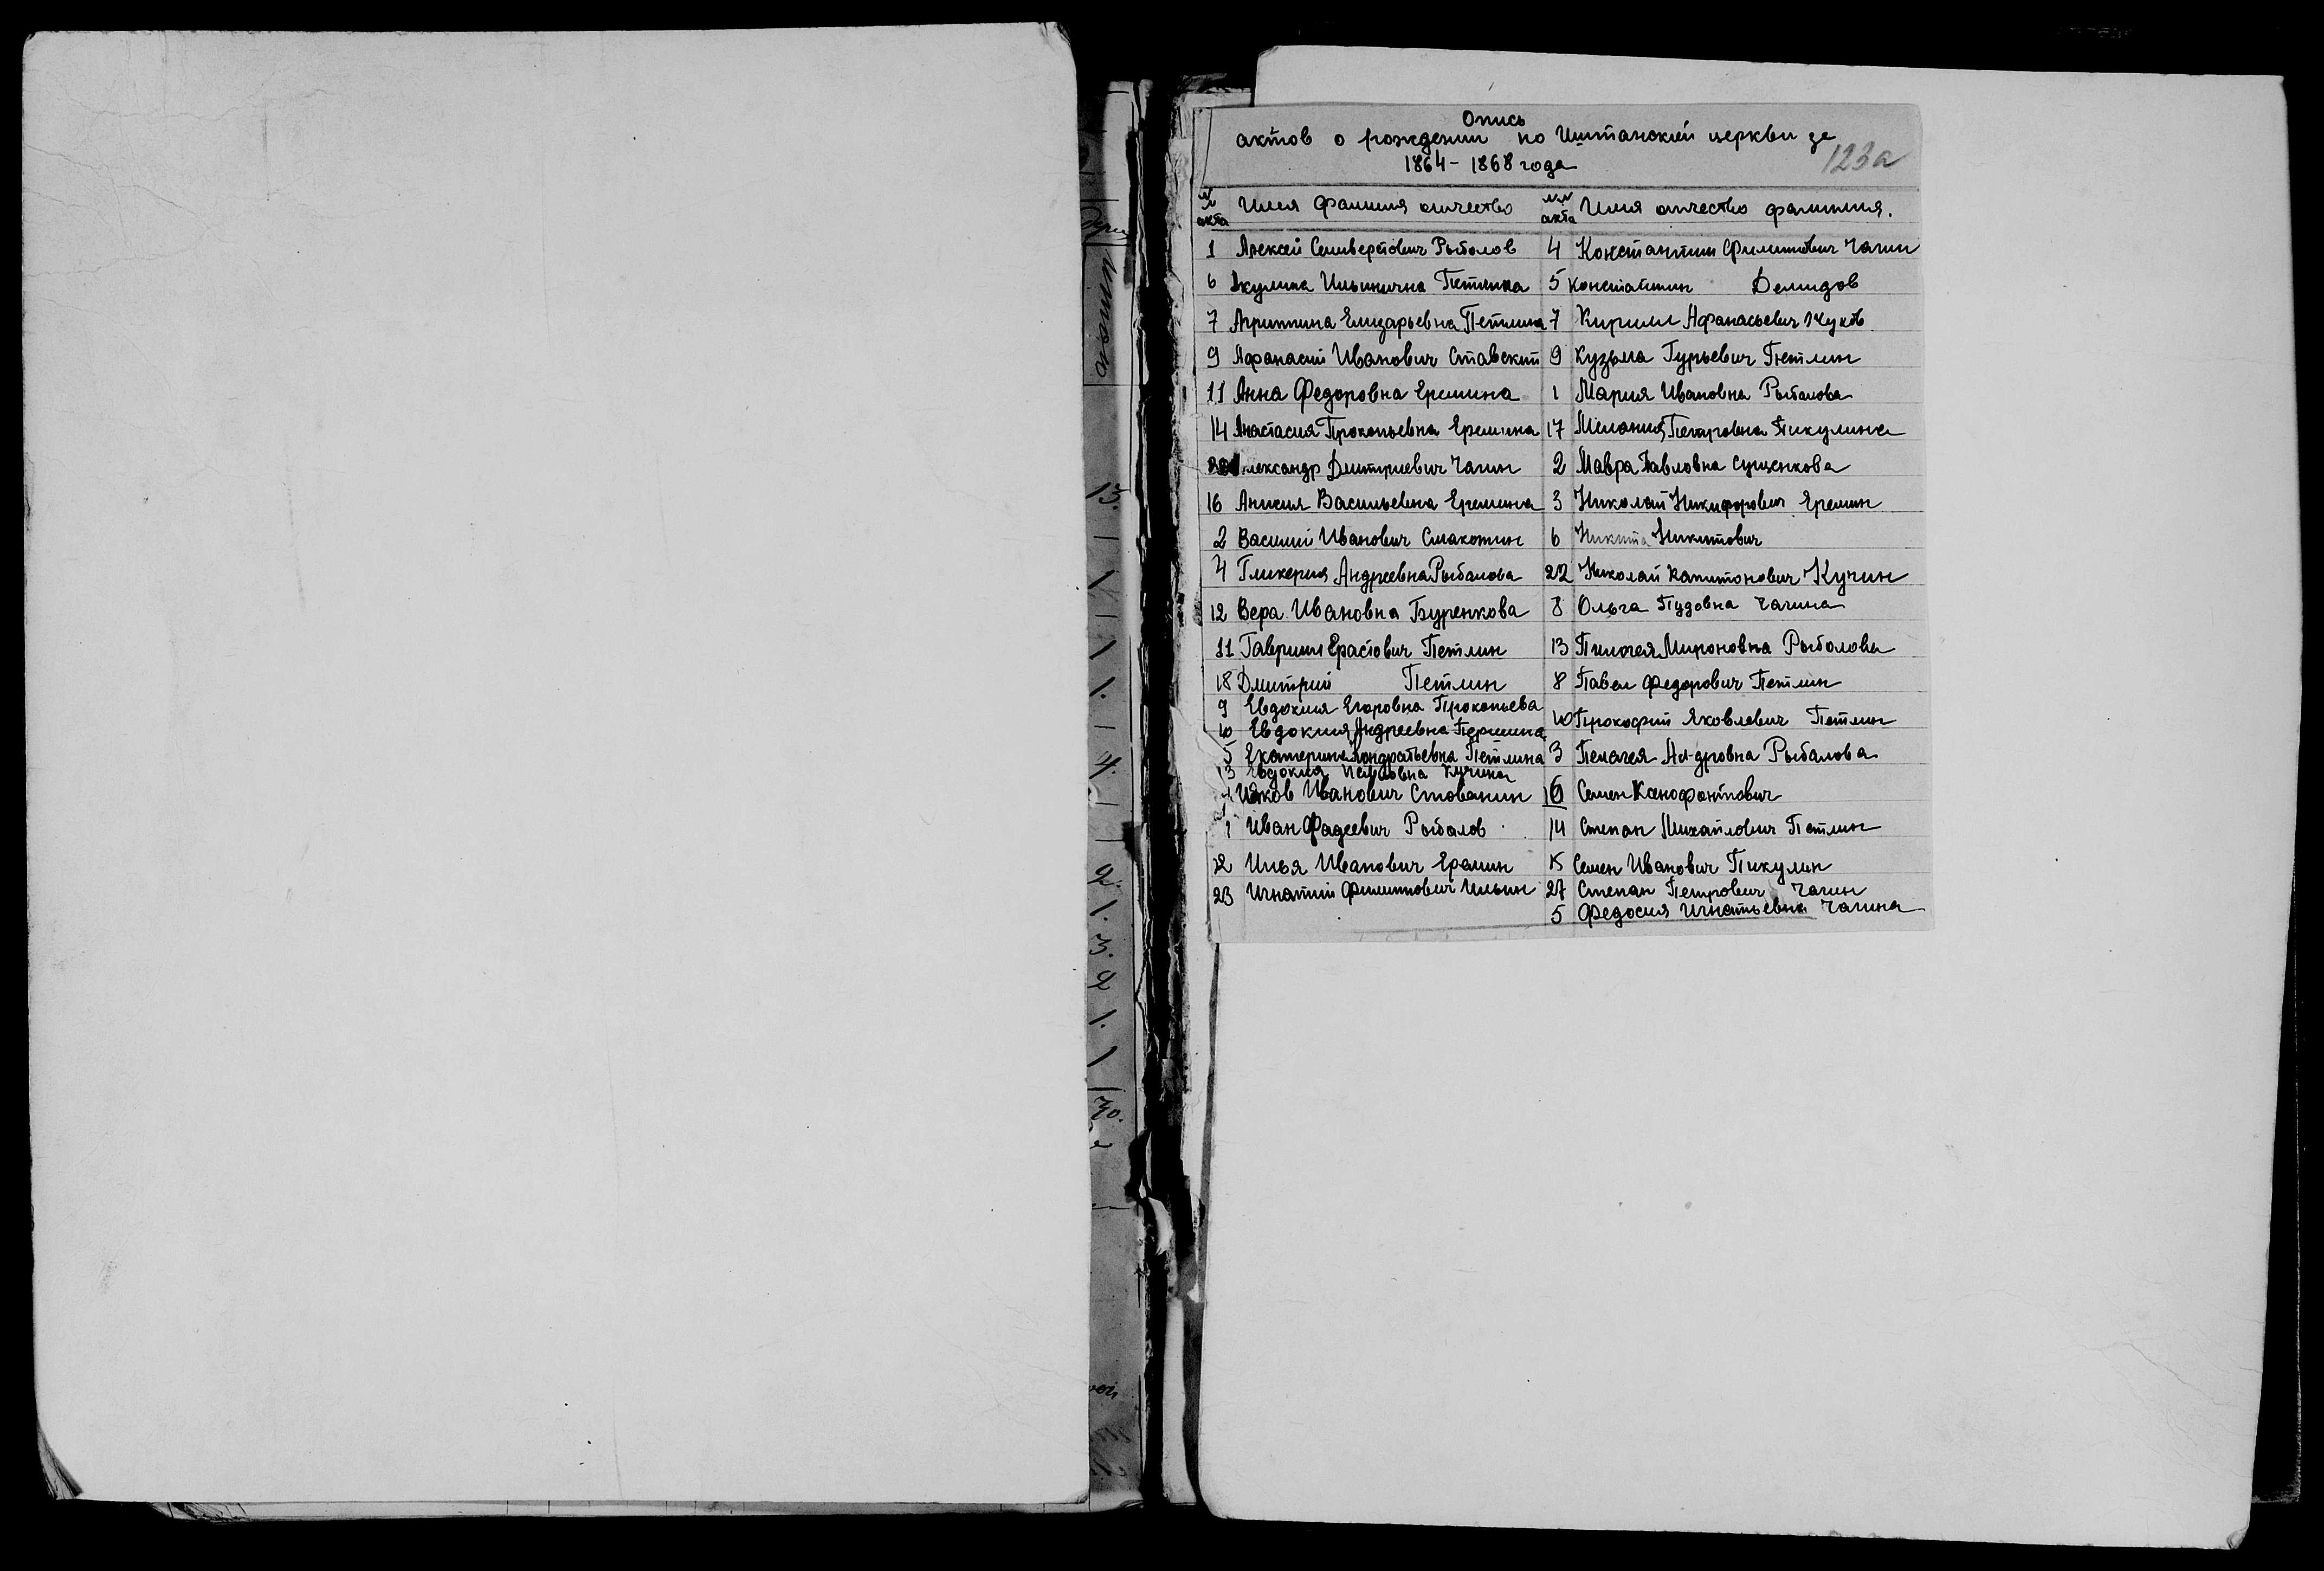 Опись
актов о рождении по Иштанской церкви за
1864 - 1868 года
123а
№ акта Имя фамилия отчество №№ акта Имя отчество фамилия.
1 Алексей Селиверстович Рыбалов 4 Константин Филиппович Чагин
6 Акулина Ильинична Петлина 5 Константин Демидов
7 Агриппина Елизарьевна Петлина 7 Кирилл Афанасьевич Жуков
9 Афанасий Иванович Ставский 9 Кузьма Гурьевич Петлин
11 Анна Федоровна Еремина 1 Мария Ивановна Рыбалова
14 Анастасия Прокопьевна Еремина 17 Мелания Петровна Пикулина
Александр Дмитриевич Чагин 2 Мавра Павловна Сущенкова
16 Анисия Васильевна Еремина 3 Николай Никифорович Еремин
2 Василий Иванович Смакотин 6 Никита Никитович
4 Гликерия Андреевна Рыбалова 22 Николай Капитонович Кучин
12 Вера Ивановна Буренкова 8 Ольга Пудовна Чагина
11 Гавриил Ерастович Петлин 13 Пилогея Мироновна Рыбалова
18 Дмитрий Петлин 8 Павел Федорович Петлин
9 Евдокия Егоровна Прокопьева
10 Евдокия Андреевна Першина 10 Прокофий Яковлевич Петлин
5 Екатерина Кондратьевна Петлина 3 Пелагея Ал-дровна Рыбалова
13 Евдокия Кучина
Иванович 16 Семен Ксенофонтович
1 Иван Фадеевич Рыбалов 14 Степан Михайлович Петлин
22 Илья Иванович Еремин 15 Семен Иванович Пикулин
23 Игнатий Филиппович Ильин 27 Степан Петрович Чагин
5 Федосия Игнатьевна Чагина